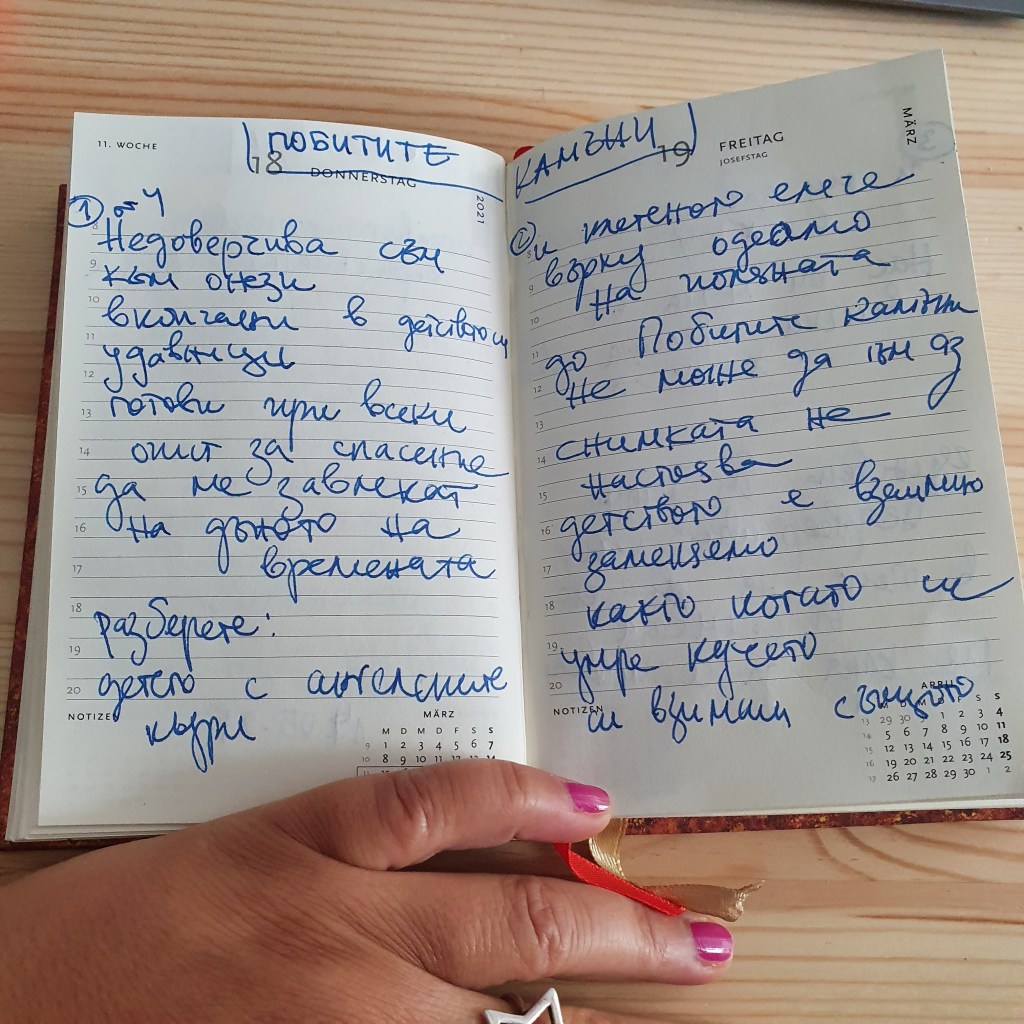 11. WOCHE
ПОБИТИТЕ
18 DONNERSTAG
2021
① от 4
Недоверчива съм
към онези
вкопчени в детството си
удавници
готови при всеки
опит за спасение
да ме завлекат
на дъното на
времената
разберете:
детето с ангелските
къдри
9
10
11
12
13
14
15
16
17
18
19
20
NOTIZEN
MÄRZ
M D M D F S S
9 1 2 3 4 5 6 7
10 8 9 10 11 12 13 14
КАМЪНИ
19 FREITAG
JOSEFSTAG
MÄRZ
② и плетеното елече
върху одеяло
на поляната
до Побитите камъни
не може да съм аз
снимката не
настоява
детството е взаимно
заменяемо
както когато си
умре кучето
си взимаш същото
9
10
11
12
13
14
15
16
17
18
19
20
NOTIZEN
APRIL
M D M D F S S
13 29 30 1 2 3 4
14 5 6 7 8 9 10 11
15 12 13 14 15 16 17 18
16 19 20 21 22 23 24 25
17 26 27 28 29 30 1 2